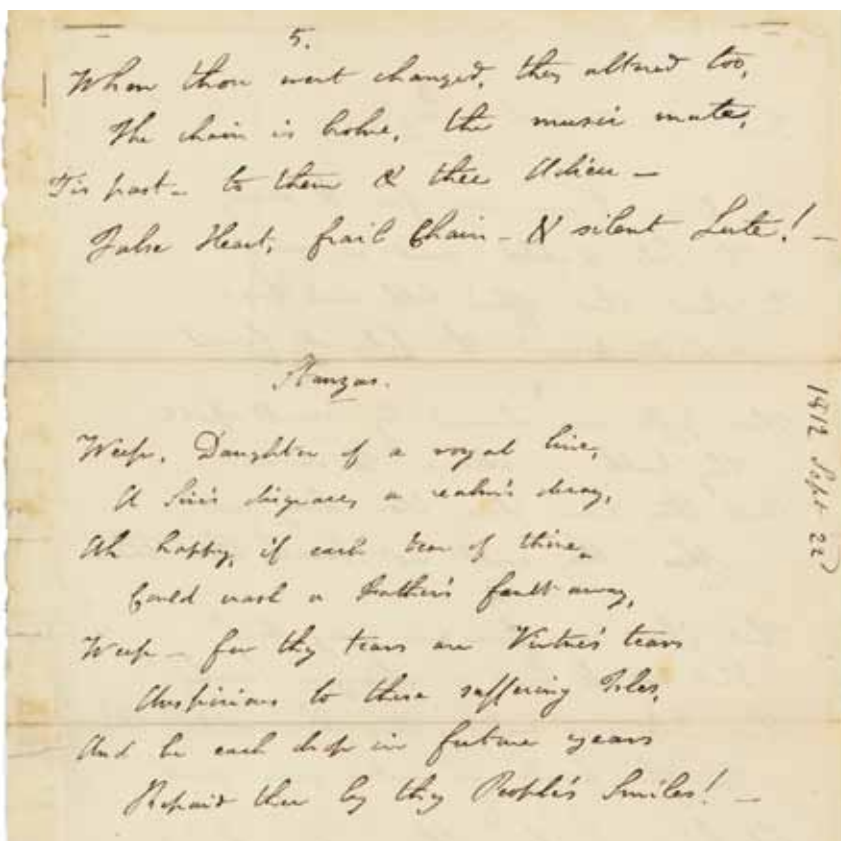 5.
When thou wert changed, they altered too,
The chain is broke, the music mute,
Tis past – to them & thee Adieu –
False Heart, frail Chain – & silent Lute! –
Stanzas.
Weep, Daughter of a royal line,
A Sire's disgrace, a realm's decay,
Ah happy, if each tear of thine,
Could wash a Father's fault away,
Weep – for thy tears are Virtue's tears
Auspicious to these suffering Isles,
And be each drop in future years
Repaid thee by thy People's Smiles! –
1812 Sept 22